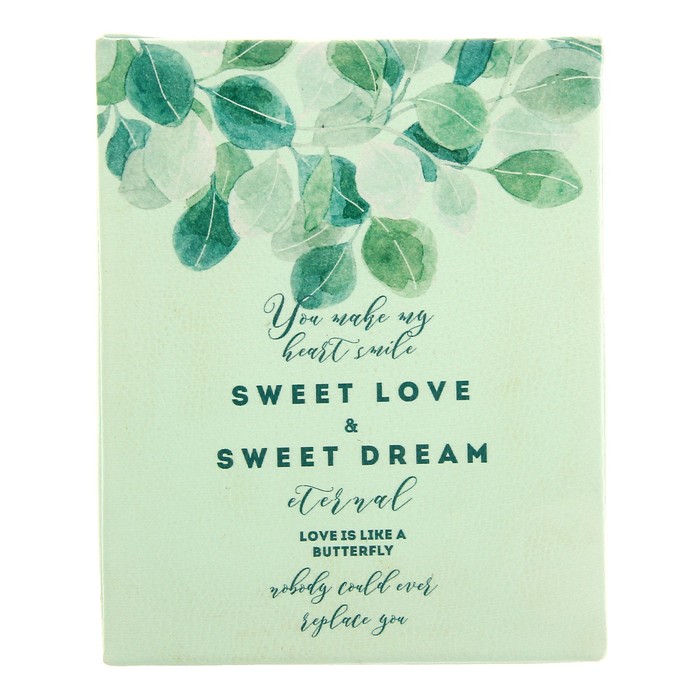 You make my
heart smile
SWEET LOVE
&
SWEET DREAM
eternal
LOVE IS LIKE A
BUTTERFLY
nobody could ever
replace you